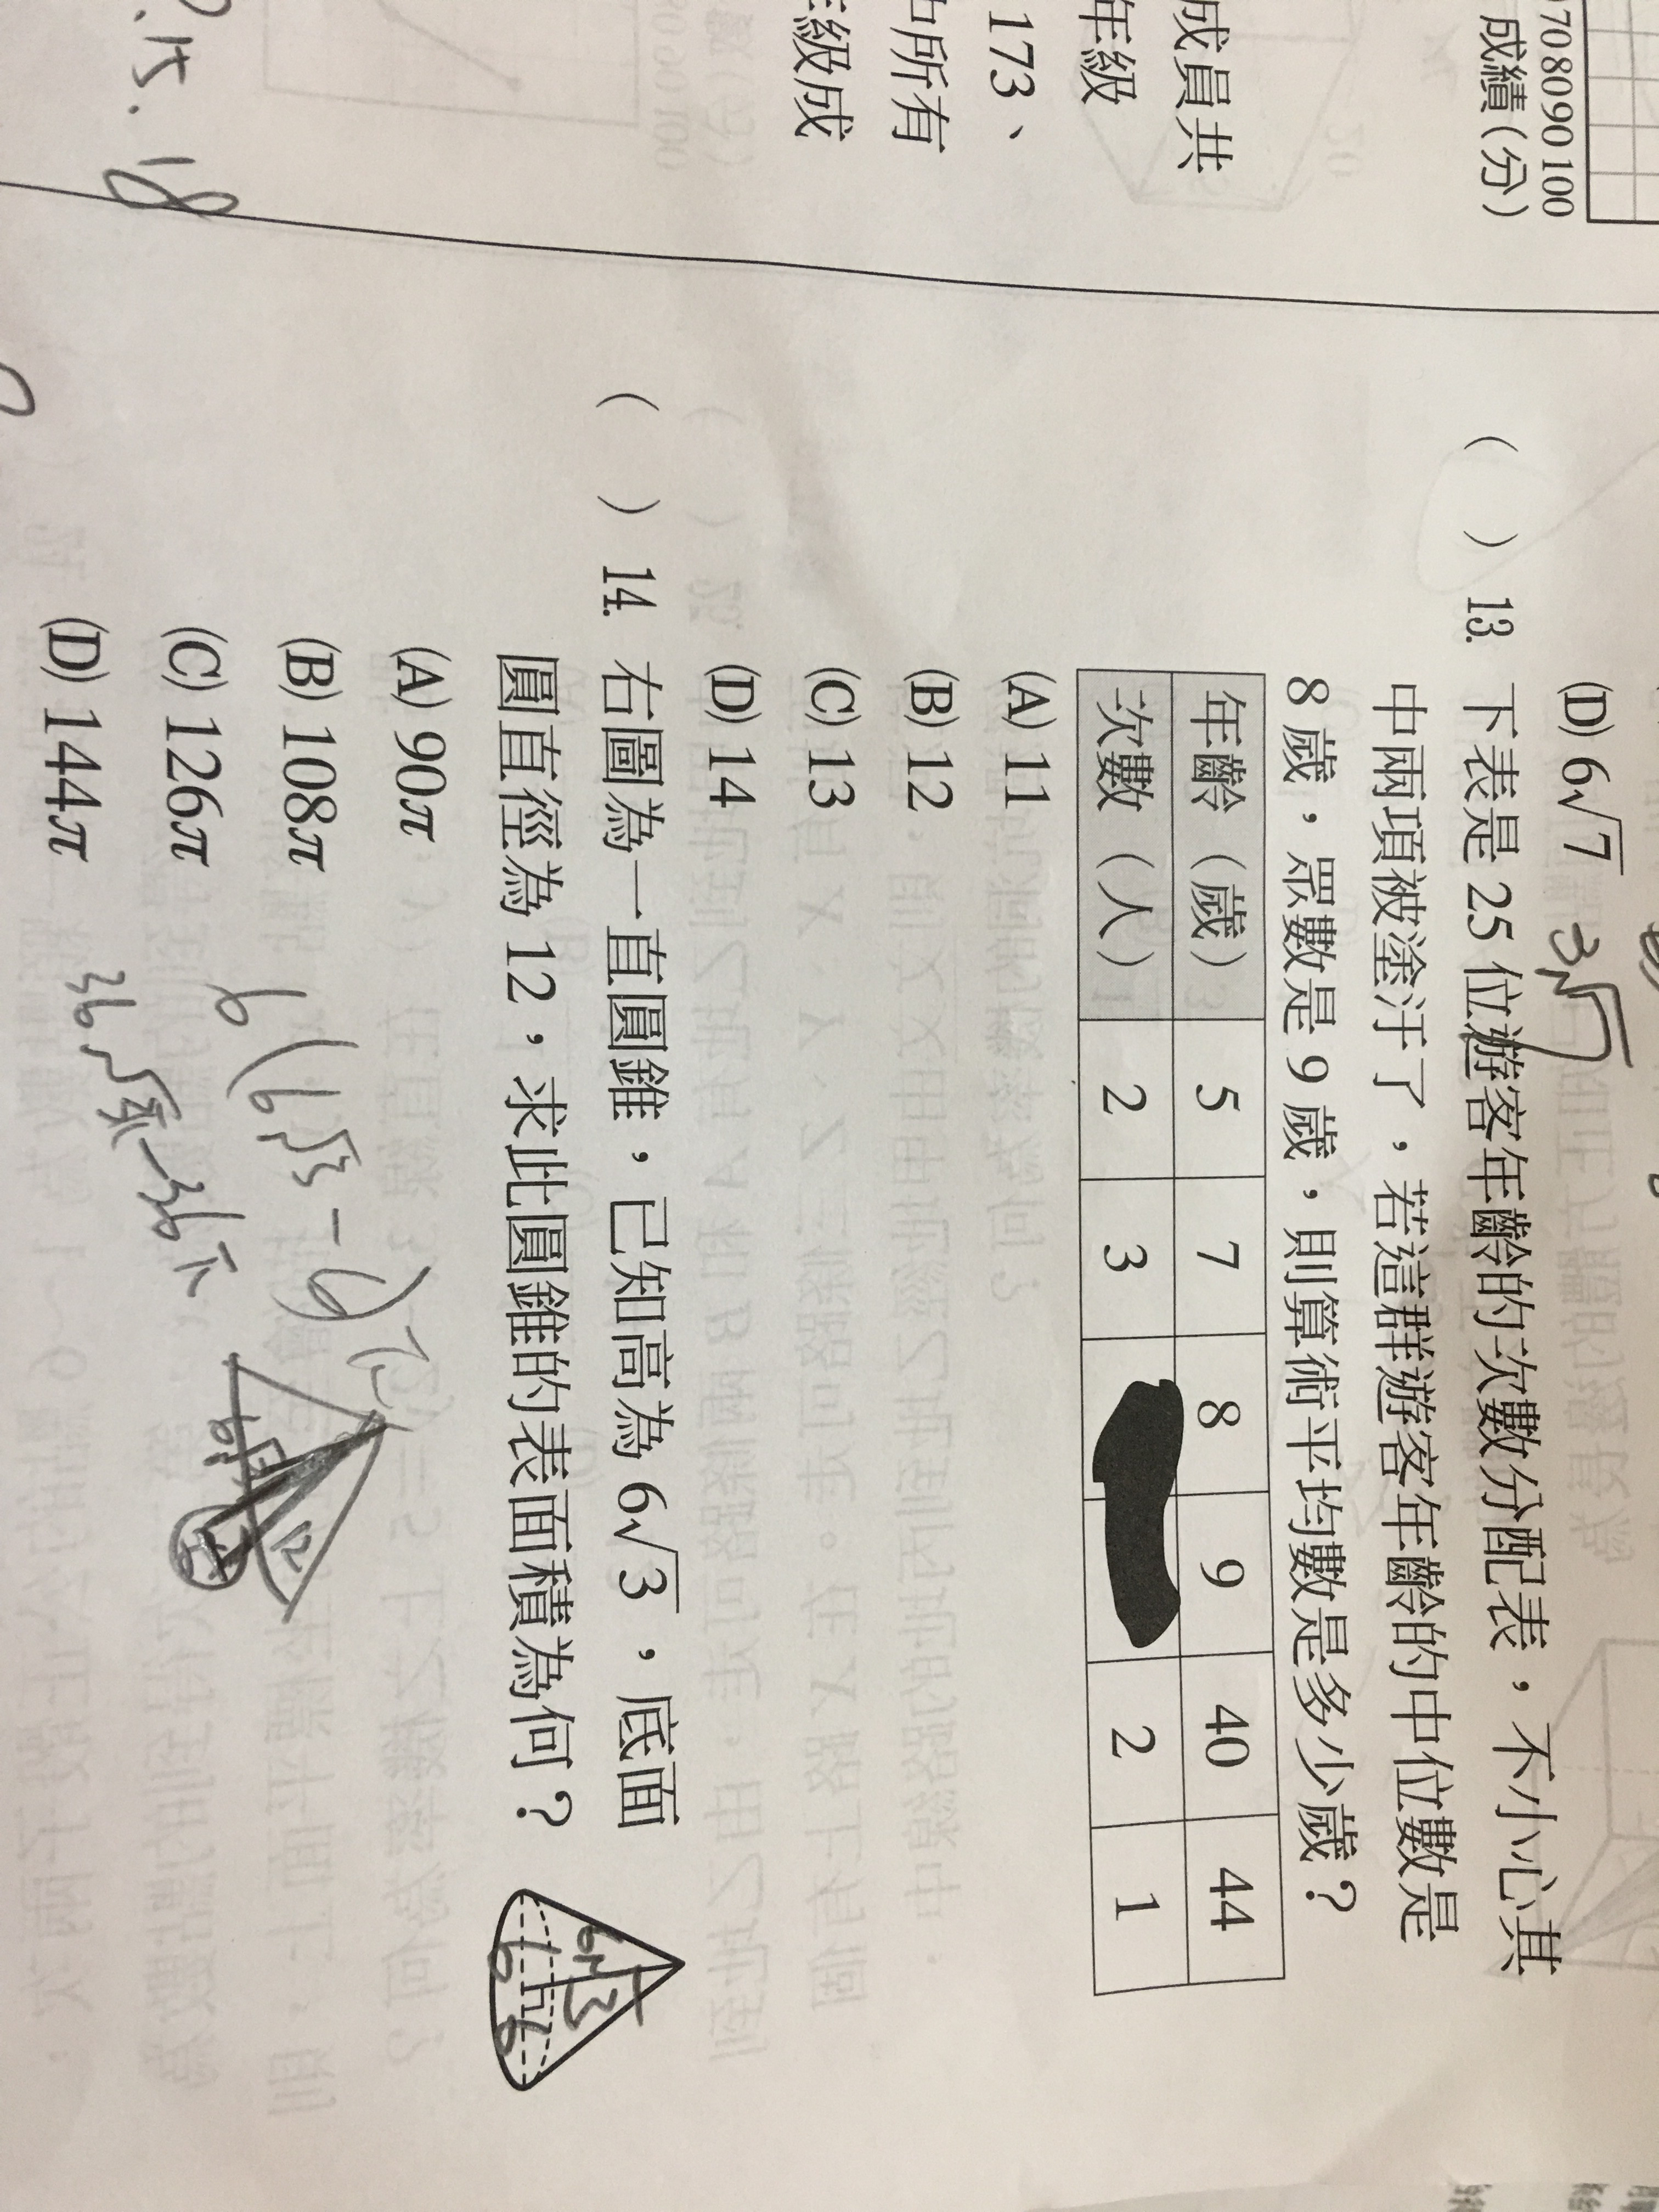 708090100
成績(分)
成員共
年級
173、
所有
級成
15. 18
(D) 6√7 3√
( ) 13. 下表是 25 位遊客年齡的次數分配表，不小心其
中兩項被塗汙了，若這群遊客年齡的中位數是
8 歲，眾數是 9 歲，則算術平均數是多少歲？
年齡（歲） 5 7 8 9 40 44
次數（人） 2 3 2 1
(A) 11
(B) 12
(C) 13
(D) 14
( ) 14. 右圖為一直圓錐，已知高為 6√3，底面
圓直徑為 12，求此圓錐的表面積為何？
(A) 90π
(B) 108π
(C) 126π
(D) 144π
6(6√3 - 6)
36√3 - 36
12
6√3
6 6